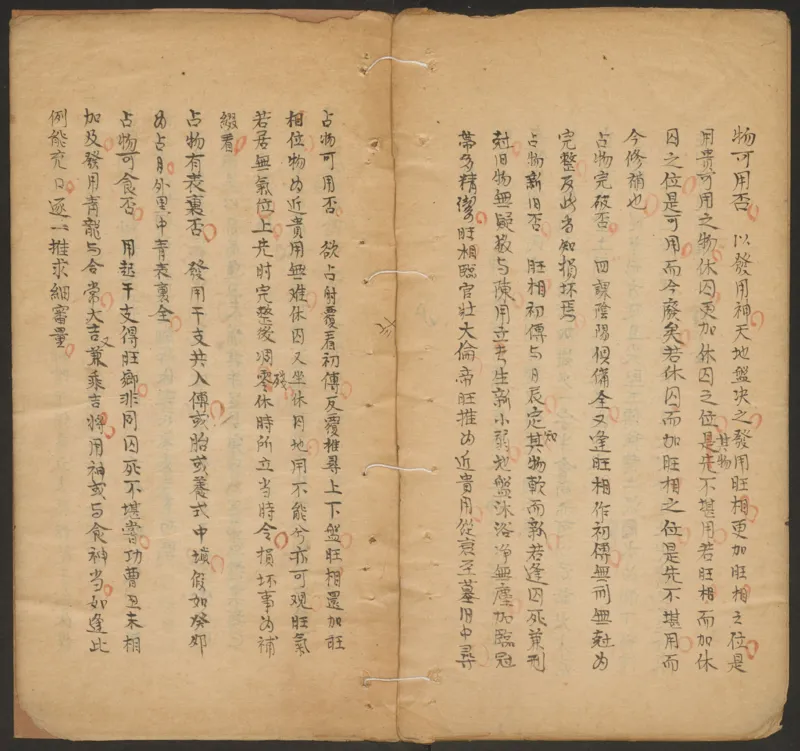 物可用否 以發用神天地盤決之發用旺相更加旺相之位是
用贵可用之物休囚更加休囚之位是其物先不堪用若旺相而加休
囚之位是可用而今廢矣若休囚而加旺相之位是先不堪用而
今修補也
占物完破否 四課陰陽俱俻全又逢旺相作初傳無刑無尅为
完整反此当知損坏焉
占物新旧否 旺相初傳与日辰定知其物軟而新若逢囚死兼刑
尅旧物無疑故与陳用立长生新小弱地盤沐浴净無塵加臨冠
帶多精潔旺相臨官壮大倫帝旺推为近貴用從衰至墓旧中尋
占物可用否 欲占射覆看初傳反覆推尋上下盤旺相還加旺
相位物为近贵用無难休囚又坐休囚地用不能兮亦可观旺氣
若居無氣位上先时完整後凋零残休時所立当時令損坏事为補
綴看
占物有表裏否 發用干支共入傳或胎或養式中填假如癸卯
为占月外黒中青表裏全
占物可食否 用起干支得旺鄉非同囚死不堪嘗功曹丑未相
加及發用青龍与合常大吉又兼乘吉將用神或与食神当如逢此
例能充口逐一推求細審量